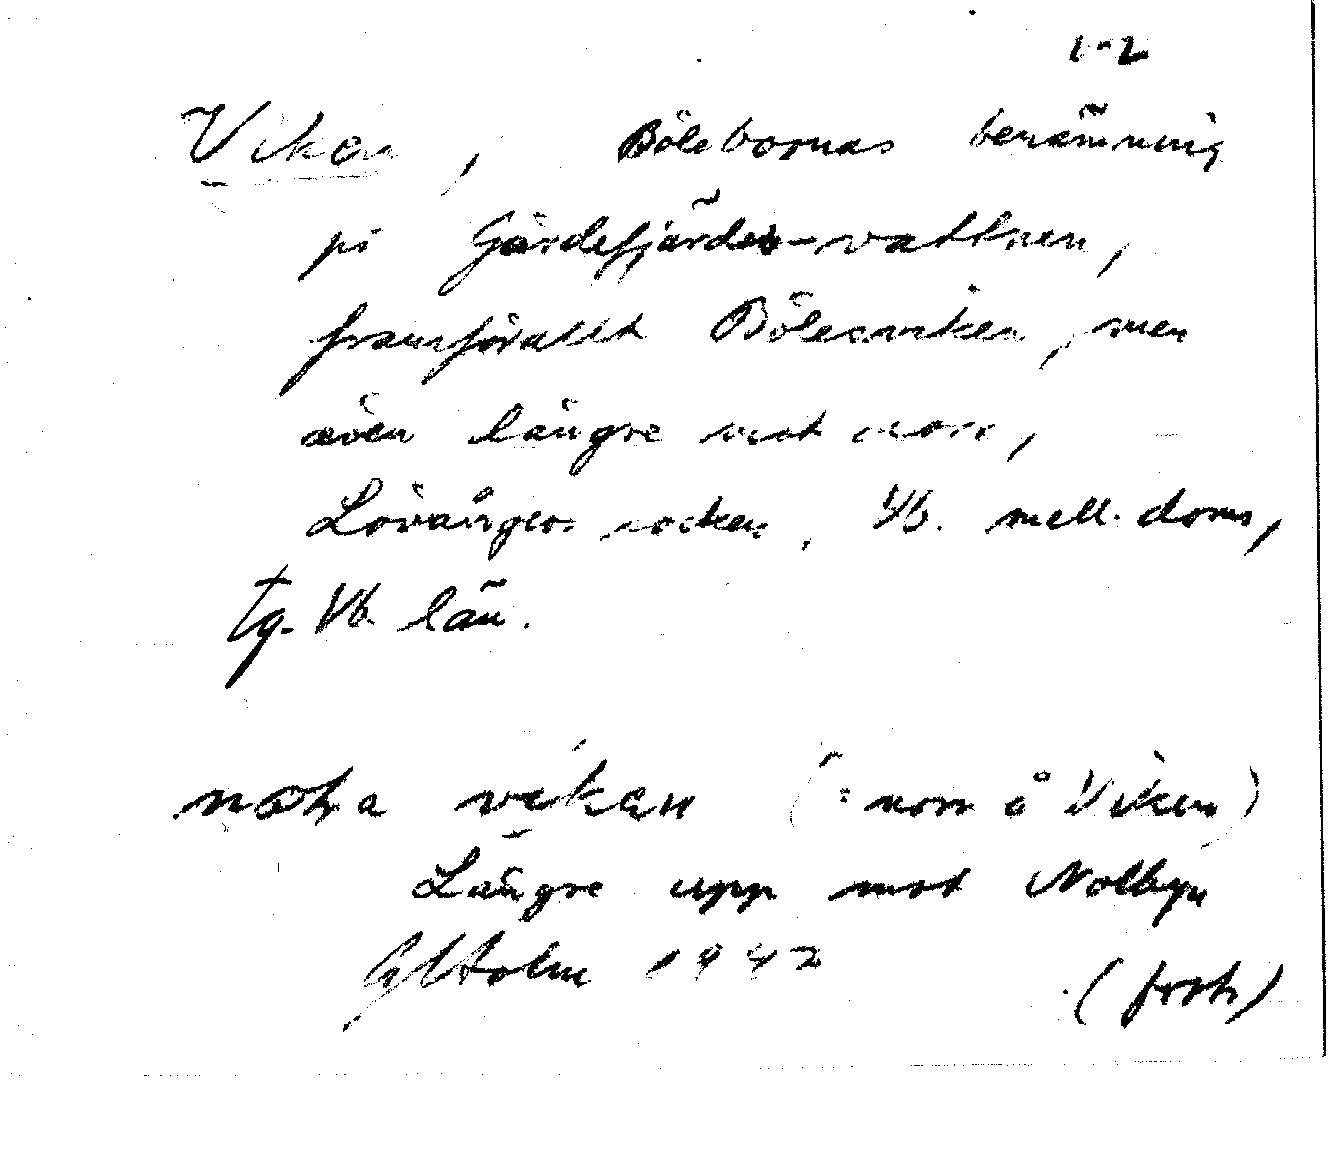 1-2
Viken, Bölebornas benämning
på Gärdefjärds-vattnen,
framförallt Bölesviken, men
även längre mot norr,
Lövångers socken, Vb. mell. doms,
tg. Vb. län.
vikan (: norr å Viken)
Längre upp mot Nolbyn
Holm 1942
(forts)